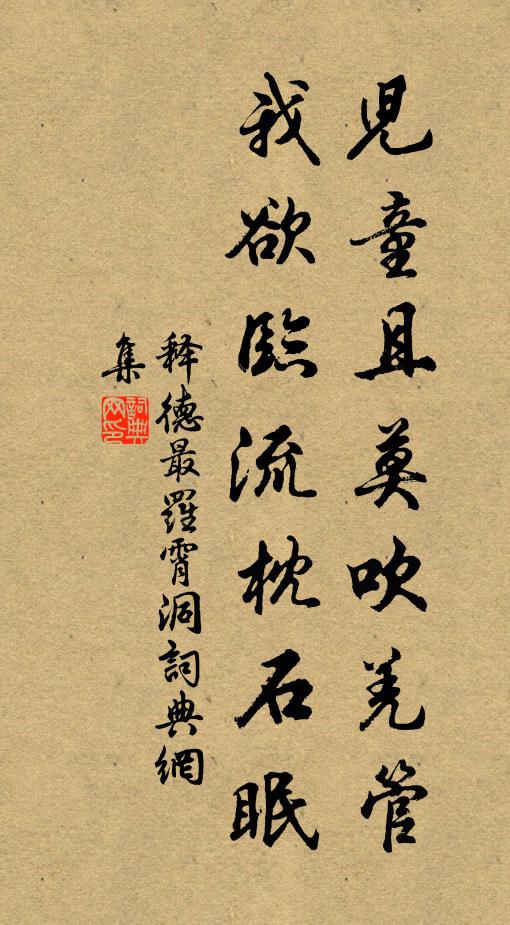 兒童且莫吹羌管
我欲臨流枕石眠
释德最羅霄洞詞典網
集
詞典网印